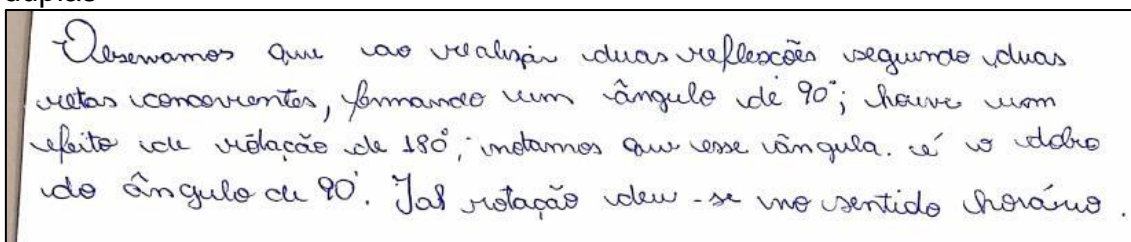 Observamos que ao realizar duas reflexões segundo duas
retas concorrentes, formando um ângulo de 90°; houve um
efeito de rotação de 180°; notamos que esse ângulo. é o dobro
do ângulo de 90°. Tal rotação deu-se no sentido horário.